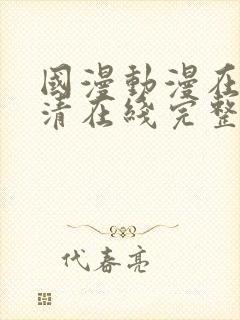 國漫動漫在
清在綫完整
代春亮